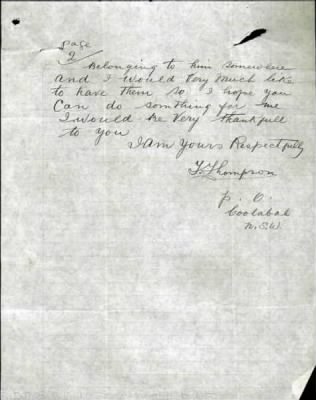 page
2/
Belonging to him somewhere
and I would Very Much like
to have them so I hope you
Can do somthing for me
I would be Very thankfull
to you
I am Yours Respectfully
T. Thompson
P. O.
Coolabah
N.S.W.